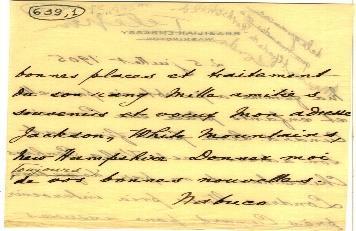 639,1
BRAZILIAN EMBASSY
WASHINGTON
bonnes places et traitement
du son rang Mille amitiés
souvenirs et voeux Mon adresse
Jackson, White Mountains,
New Hampshire Donnez moi
toujours
de vos bonnes nouvelles
Nabuco